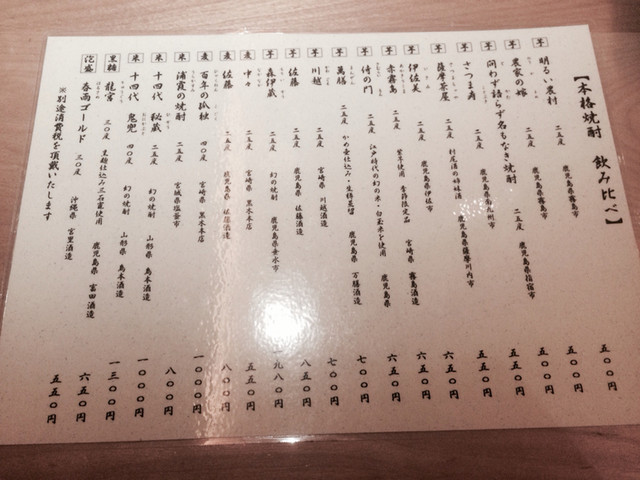 【本格焼酎 飲み比べ】
芋 明るい農村 二五度 鹿児島県霧島市 五〇〇円
芋 農家の嫁 二五度 鹿児島県霧島市 五五〇円
芋 問わず語らず名もなき焼酎 二五度 鹿児島県指宿市 五五〇円
芋 さつま寿 二五度 鹿児島県南九州市 五五〇円
芋 薩摩茶屋 二五度 村尾酒の姉妹酒 鹿児島県薩摩川内市 六五〇円
芋 伊佐美 二五度 鹿児島県伊佐市 六五〇円
芋 赤霧島 二五度 紫芋使用 季節限定品 宮崎県 霧島酒造 六五〇円
芋 侍の門 二五度 江戸時代の幻の米・白玉米を使用 鹿児島県 七〇〇円
芋 萬膳 二五度 かめ壺仕込み・木樽蒸留 鹿児島県 万膳酒造 七〇〇円
芋 川越 二五度 宮崎県 川越酒造 七〇〇円
芋 佐藤 二五度 鹿児島県 佐藤酒造 八五〇円
芋 森伊蔵 二五度 幻の焼酎 鹿児島県垂水市 一九八〇円
麦 中々 二五度 宮崎県 黒木本店 五五〇円
麦 佐藤 二五度 鹿児島県 佐藤酒造 八〇〇円
麦 百年の孤独 四〇度 宮崎県 黒木本店 一〇〇〇円
米 浦霞の焼酎 二五度 宮城県塩釜市 八〇〇円
米 十四代 秘蔵 二五度 幻の焼酎 山形県 高木酒造 一〇〇〇円
米 十四代 鬼兜 四〇度 幻の焼酎 山形県 高木酒造 一三〇〇円
黒糖 龍宮 三〇度 黒麹仕込み三石甕使用 鹿児島県 富田酒造 六五〇円
泡盛 春雨ゴールド 三〇度 沖縄県 宮里酒造 五五〇円
※別途消費税を頂戴いたします